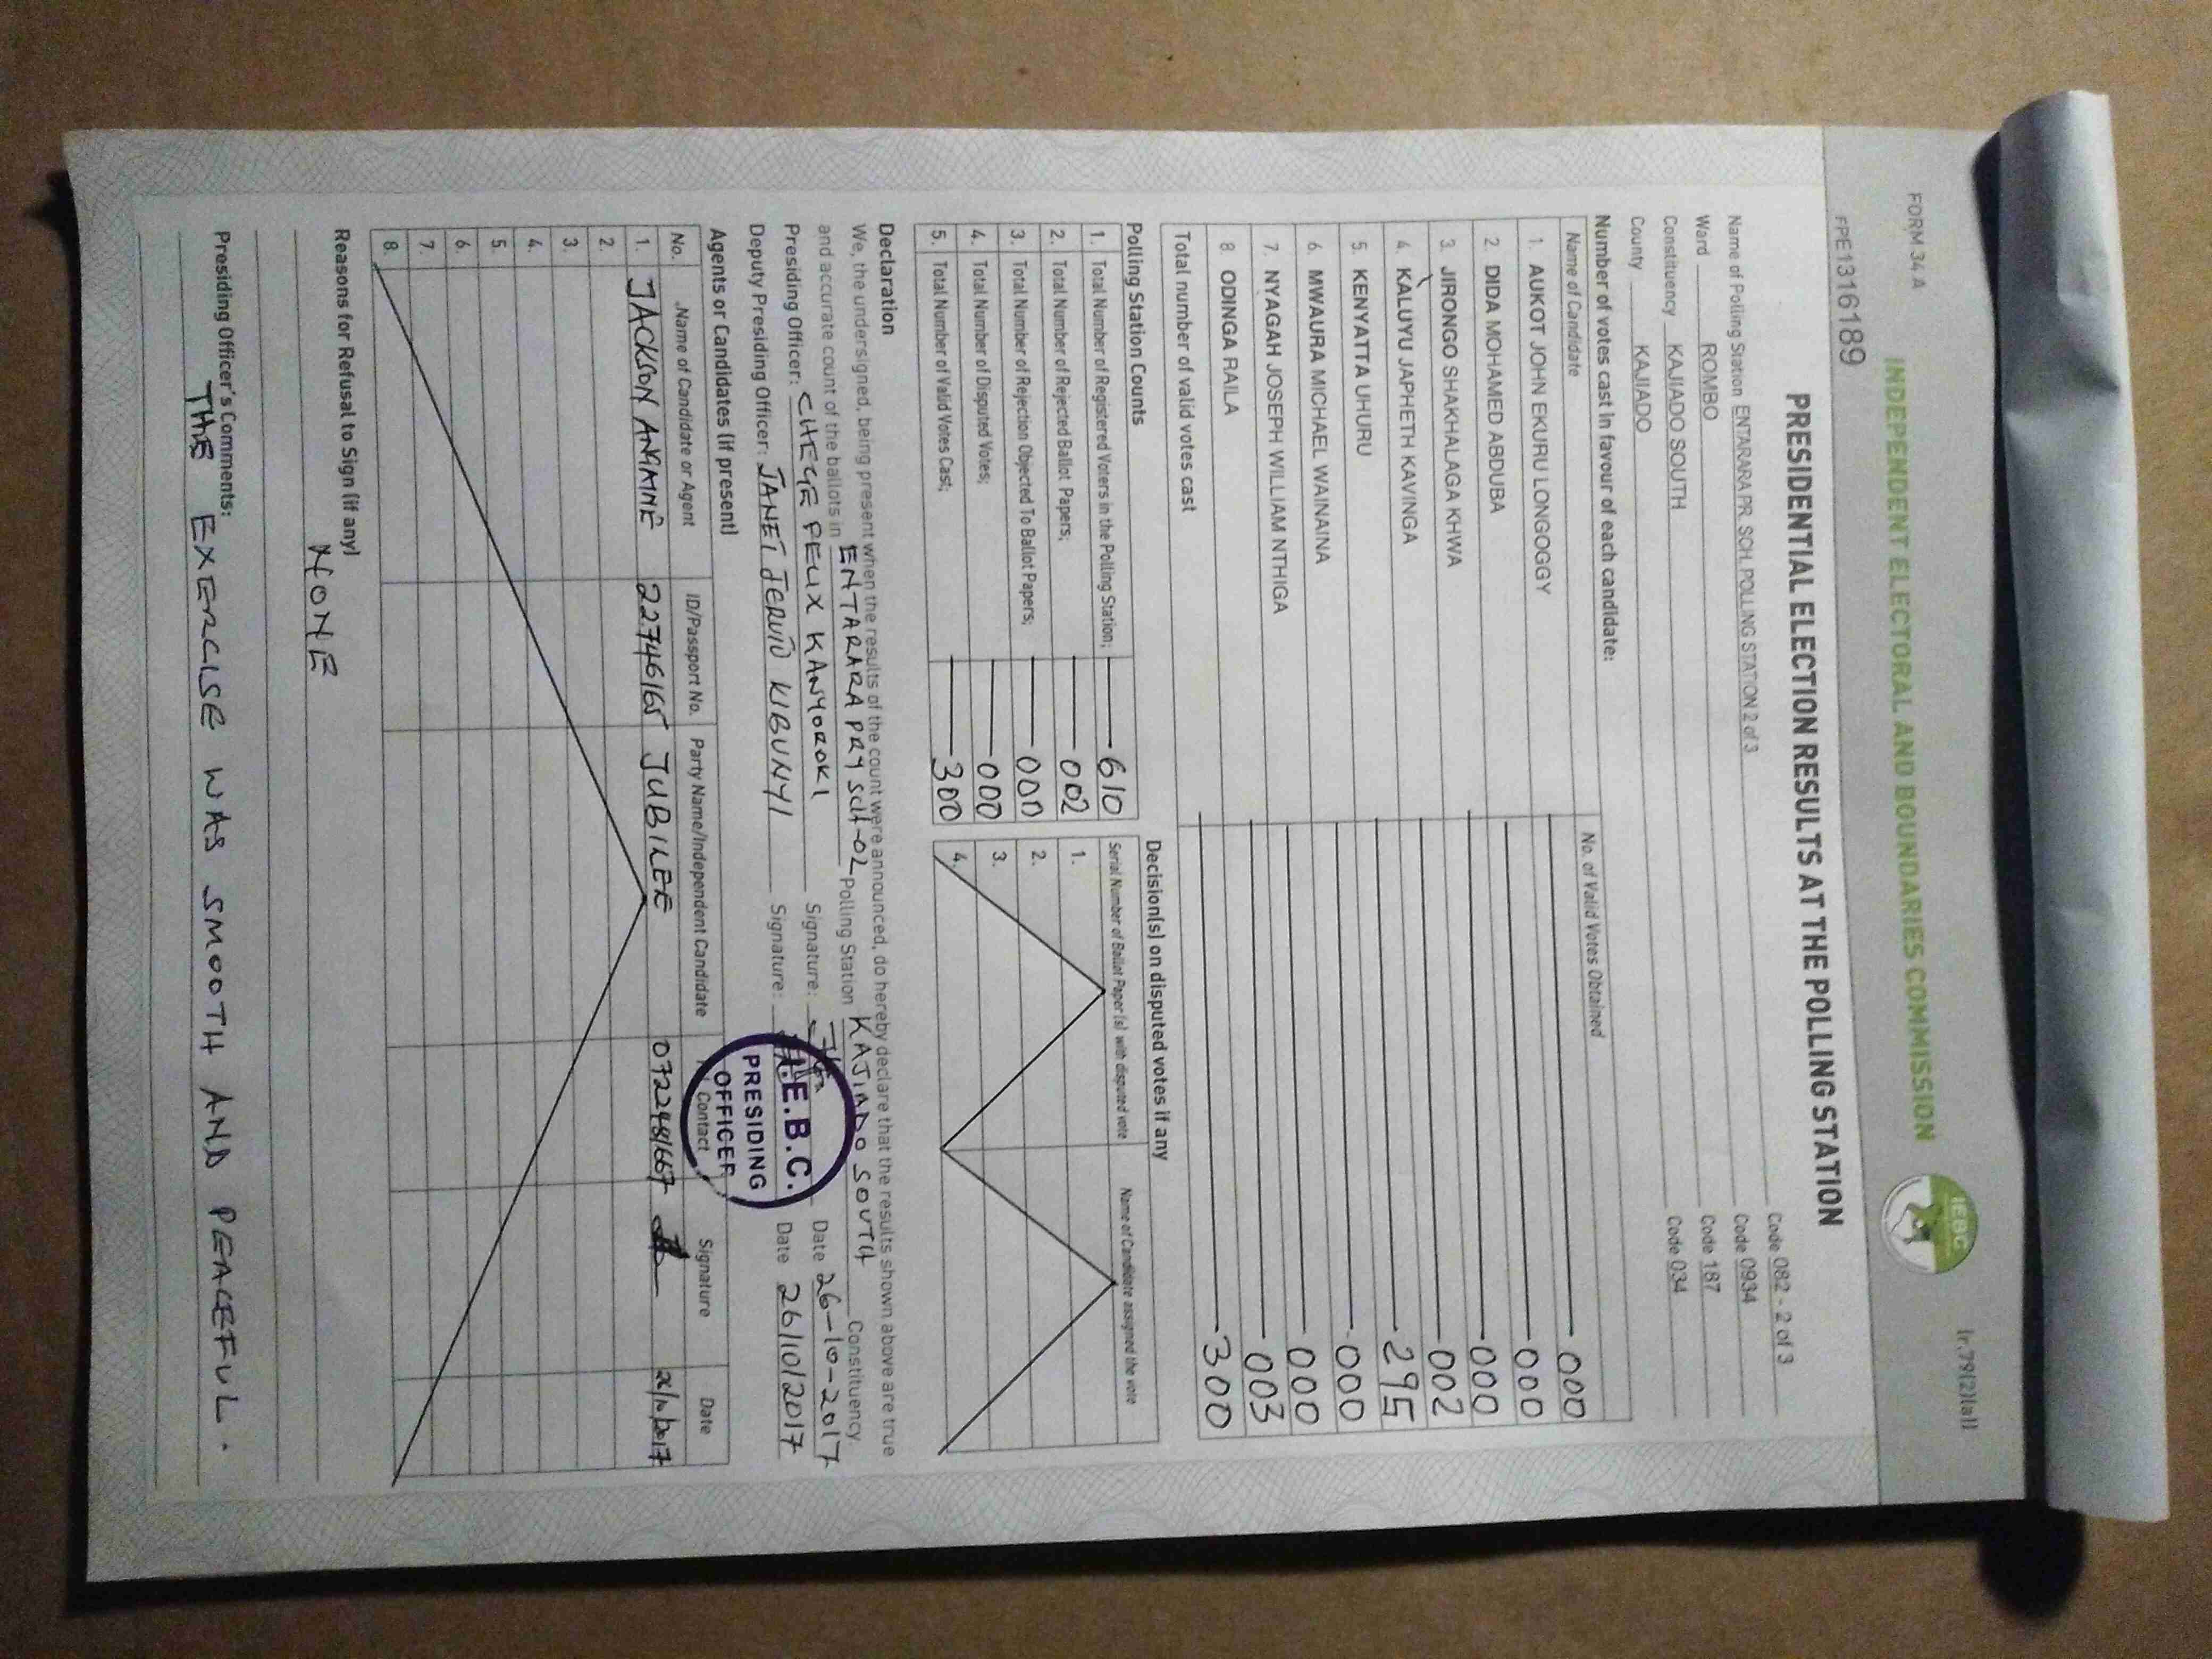 FORM 34A
INDEPENDENT ELECTORAL AND BOUNDARIES COMMISSION
IEBC
(r.79(2)(a))
FPE1316189
PRESIDENTIAL ELECTION RESULTS AT THE POLLING STATION
Name of Polling Station ENTARARA PR. SCH. POLLING STATION 2 of 3 Code 082 - 2 of 3
Ward ROMBO Code 0934
Constituency KAJIADO SOUTH Code 187
County KAJIADO Code 034
Number of votes cast in favour of each candidate:
Name of Candidate No. of Valid Votes Obtained
1. AUKOT JOHN EKURU LONGOGGY 000
2. DIDA MOHAMED ABDUBA 000
3. JIRONGO SHAKHALAGA KHWA 000
4. KALUYU JAPHETH KAVINGA 002
5. KENYATTA UHURU 295
6. MWAURA MICHAEL WAINAINA 000
7. NYAGAH JOSEPH WILLIAM NTHIGA 000
8. ODINGA RAILA 003
Total number of valid votes cast 300
Polling Station Counts
1. Total Number of Registered Voters in the Polling Station; 610
2. Total Number of Rejected Ballot Papers; 002
3. Total Number of Rejection Objected To Ballot Papers; 000
4. Total Number of Disputed Votes; 000
5. Total Number of Valid Votes Cast; 300
Decision(s) on disputed votes if any
Serial Number of Ballot Paper(s) with disputed vote Name of Candidate assigned the vote
1.
2.
3.
4.
Declaration
We, the undersigned, being present when the results of the count were announced, do hereby declare that the results shown above are true
and accurate count of the ballots in ENTARARA PRY SCH-02 Polling Station KAJIADO SOUTH Constituency.
Presiding Officer: CHEGE FELIX KANYOROKI Signature: Date 26-10-2017
Deputy Presiding Officer: JANET JERUIO KIBUNYI Signature: Date 26/10/2017
I.E.B.C.
PRESIDING
OFFICER
Agents or Candidates (if present)
No. Name of Candidate or Agent ID/Passport No. Party Name/Independent Candidate Contact Signature Date
1. JACKSON 22746165 JUBILEE 0722481667
2.
3.
4.
5.
6.
7.
8.
Reasons for Refusal to Sign (if any)
NONE
Presiding Officer's Comments:
THE EXERCISE WAS SMOOTH AND PEACEFUL.